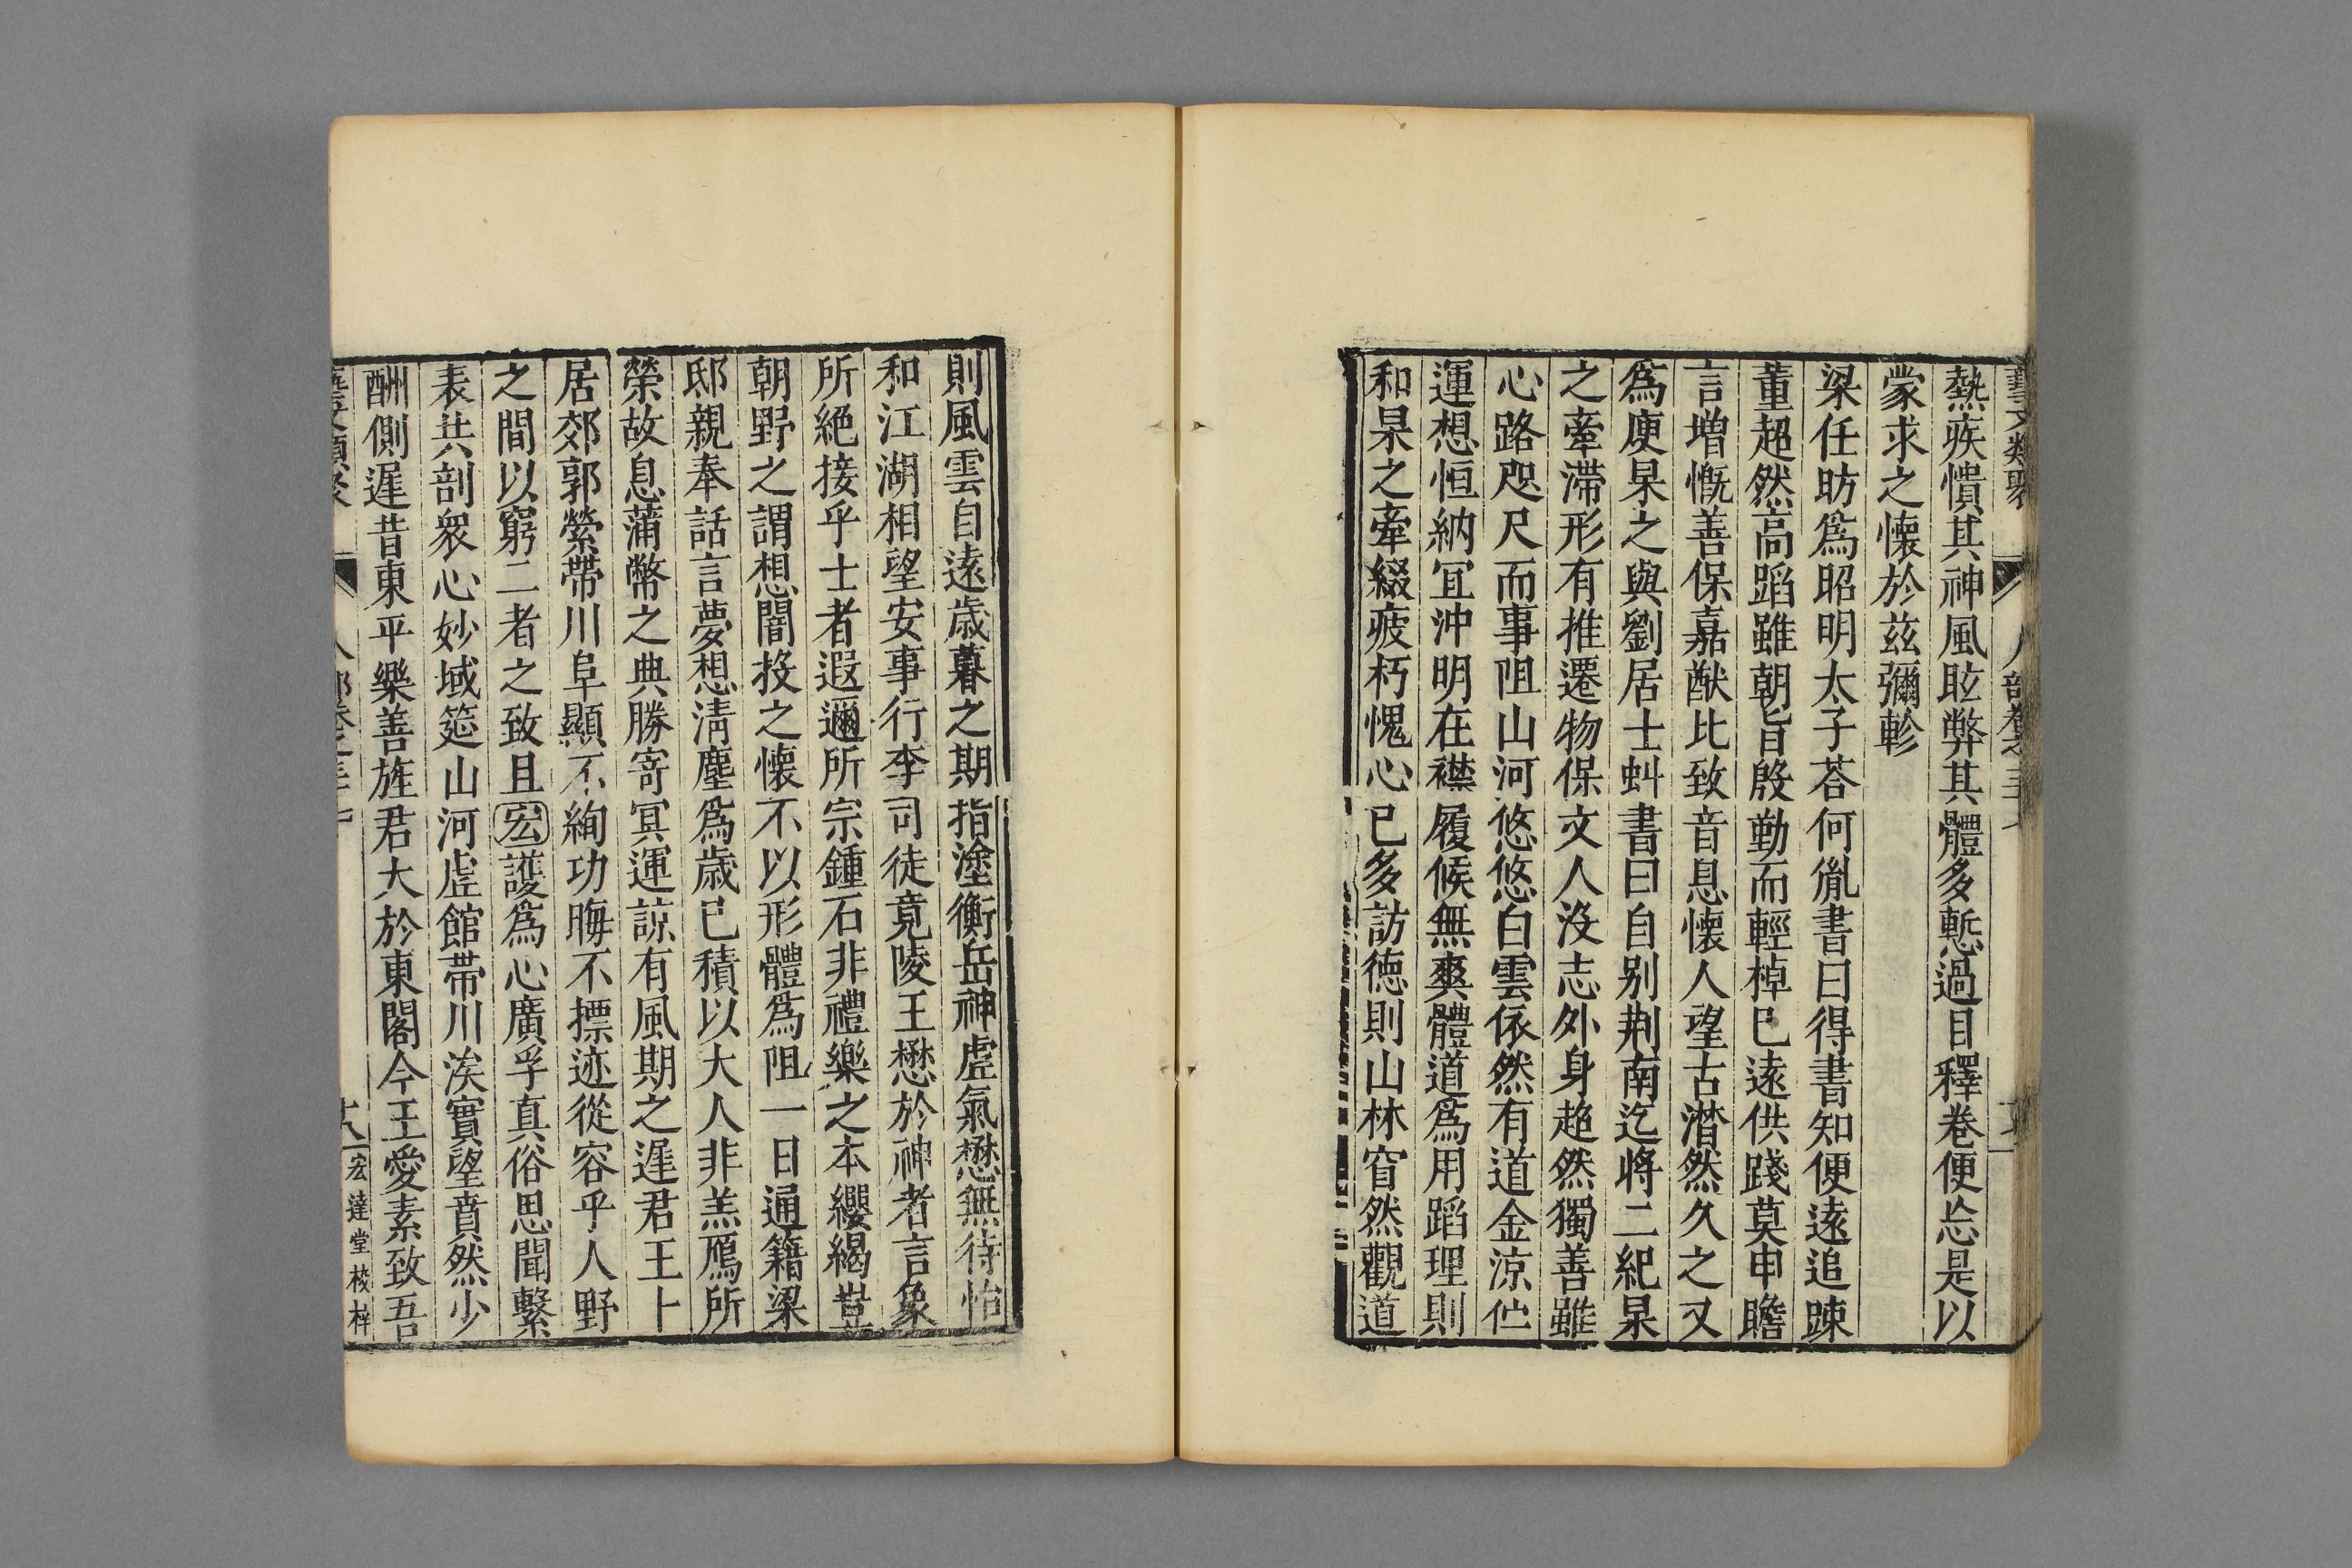 藝文類聚 人部卷之三十七
熱疾憒其神風眩弊其體多慙過目釋卷便忘是以
蒙求之懷於茲彌軫
梁任昉爲昭明太子荅何胤書曰得書知便遠追踈
董超然高蹈雖朝旨殷勤而輕棹已遠供踐莫申瞻
言增慨善保嘉猷比致音息懷人望古潸然久之又
爲庾杲之與劉居士虯書曰自别荆南迄將二紀杲
之牽滯形有推遷物保文人没志外身超然獨善雖
心路咫尺而事阻山河悠悠白雲依然有道金涼佇
運想恒納冝沖明在襟履候無爽體道爲用蹈理則
和杲之牽綴疲朽愧心已多訪德則山林窅然觀道
則風雲自遠歲暮之期指塗衡岳神虛氣懋無待怡
和江湖相望安事行李司徒竟陵王懋於神者言象
所絶接乎士者遐邇所宗鍾石非禮樂之本纓緆豈
朝野之謂想闇投之懷不以形體爲阻一日通籍梁
邸親奉話言夢想清塵爲歲已積以大人非羔鴈所
榮故息蒲幣之典勝寄冥運諒有風期之遲君王卜
居郊郭縈帶川阜顯不絢功晦不摽迹從容乎人野
之間以窮二者之致且宏護爲心廣孚真俗思聞繫
表共剖衆心妙域筵山河虛館帶川涘實望賁然少
酬側遲昔東平樂善旌君大於東閣今王愛素致吾
藝文類聚 人部卷之三十七 十八 宏達堂校梓